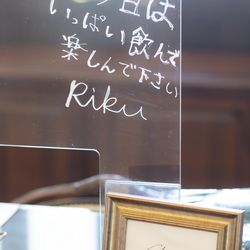 今日は、
いっぱい飲んで
楽しんで下さい
Riku